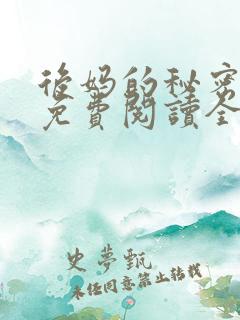 後妈的秘密
免費閱讀全
史夢甄
未经同意禁止转载